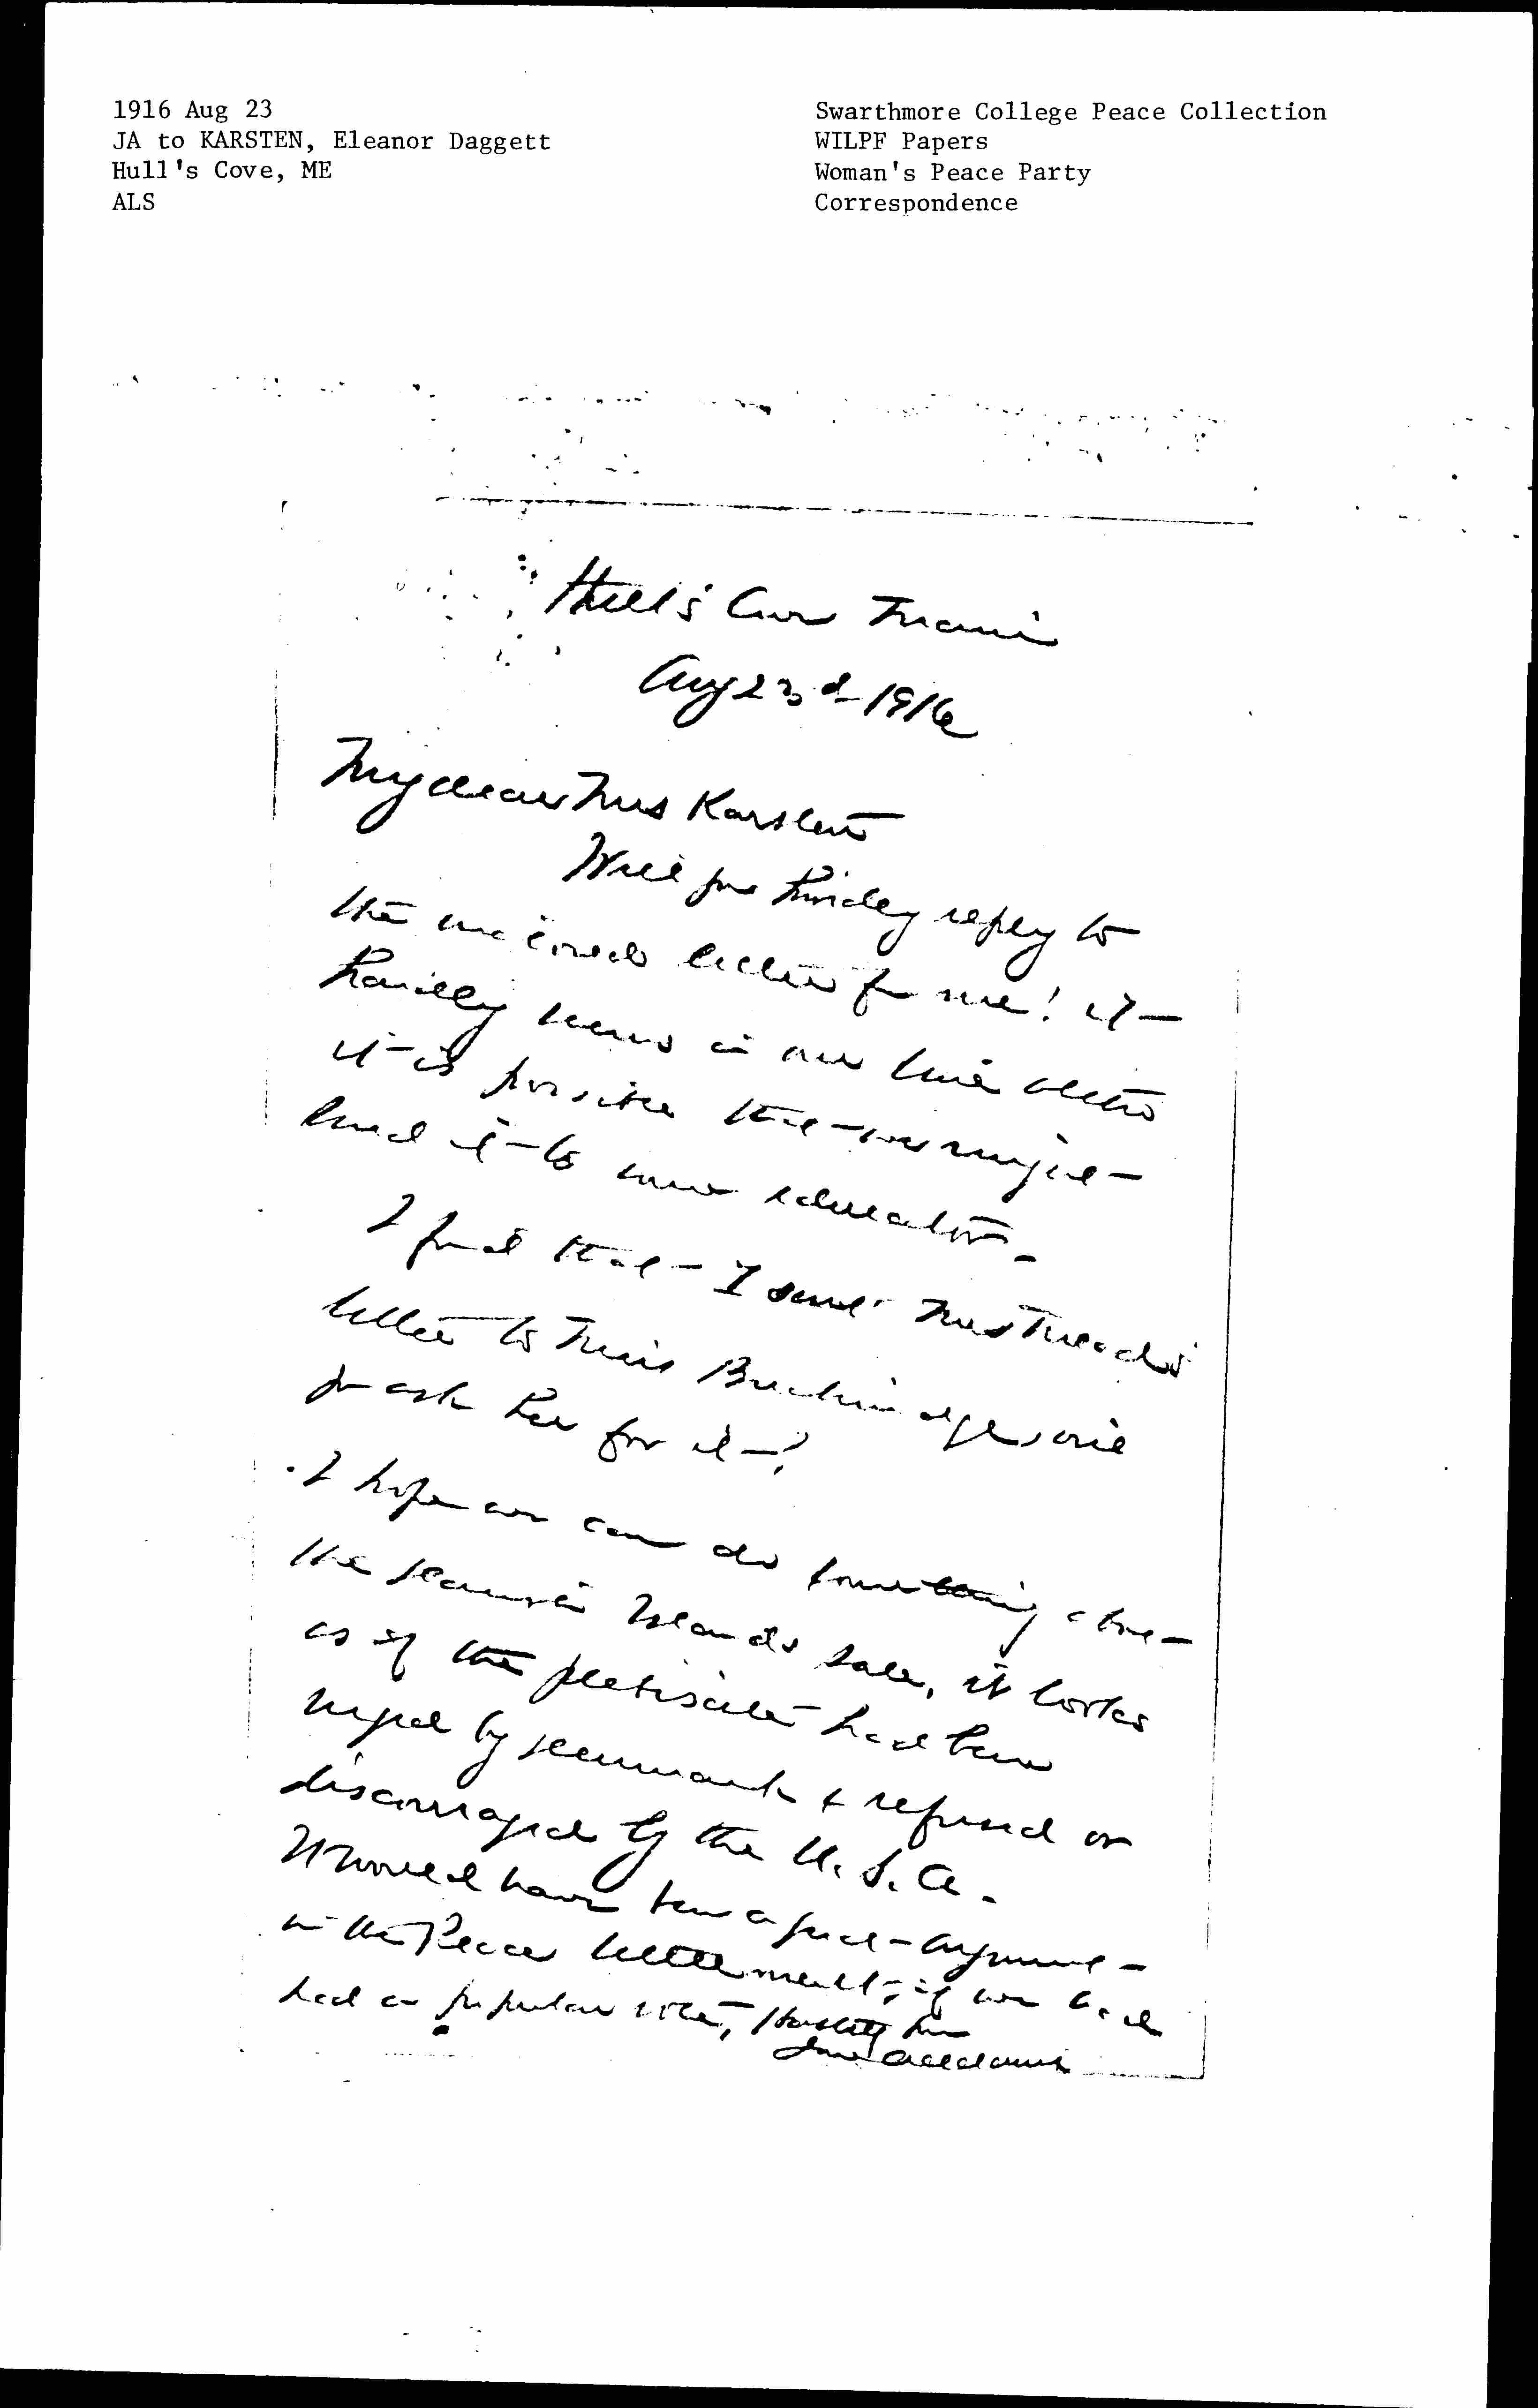 1916 Aug 23
JA to KARSTEN, Eleanor Daggett
Hull's Cove, ME
ALS
Swarthmore College Peace Collection
WILPF Papers
Woman's Peace Party
Correspondence
Hull's Cove Maine
Aug 23d 1916
My dear Mrs Karsten
Will you kindly reply to
the enclosed letter for me! it
hardly seems in our line altho
it is possible that we might
send it to some educator.
I find that I sent Mrs Mead's
letter to Miss Breckinridge, will
you ask her for it?
I hope we can do something about
the Danish Islands sale, it looks
as if the plebiscite had been
urged by Denmark & refused or
discouraged by the U.S.A.
It would have been a good argument
in the Peace settlement, if we had
had a popular vote, Hastily yrs
Jane Addams